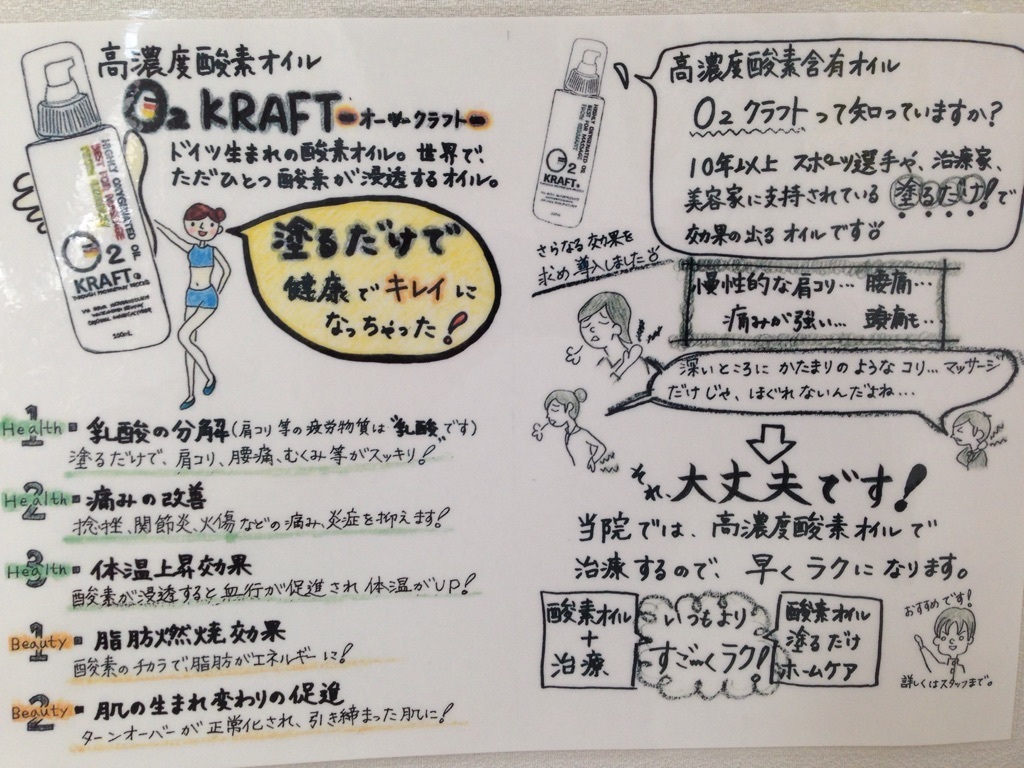 高濃度酸素オイル
O2 KRAFT -オーツークラフト-
ドイツ生まれの酸素オイル。世界で、
ただひとつ酸素が浸透するオイル。
HIGHLY OXYGENATED OIL
BEST FOR MASSAGE
O2
KRAFT.
100mL
塗るだけで
健康でキレイに
なっちゃった!
Health 1 乳酸の分解(肩コリ等の疲労物質は"乳酸"です)
塗るだけで、肩コリ、腰痛、むくみ等がスッキリ!
Health 2 痛みの改善
捻挫、関節炎、火傷などの痛み、炎症を抑えます!
Health 3 体温上昇効果
酸素が浸透すると血行が促進され体温がUP!
Beauty 1 脂肪燃焼効果
酸素のチカラで、脂肪がエネルギーに!
Beauty 2 肌の生まれ変わりの促進
ターンオーバーが正常化され、引き締まった肌に!
HIGHLY OXYGENATED OIL
BEST FOR MASSAGE
O2
KRAFT.
高濃度酸素含有オイル
O2 クラフトって知っていますか?
10年以上 スポーツ選手や、治療家、
美容家に支持されている 塗るだけ!で
効果の出るオイルです
さらなる効果を
求め導入しました
慢性的な肩コリ… 腰痛…
痛みが強い… 頭痛も…
深いところにかたまりのようなコリ…マッサージ
だけじゃ、ほぐれないんだよね…
それ、大丈夫です!
当院では、高濃度酸素オイルで
治療するので、早くラクになります。
酸素オイル
+
治療
いつもより
すご〜くラク!
酸素オイル
塗るだけ
ホームケア
おすすめです!
詳しくはスタッフまで。